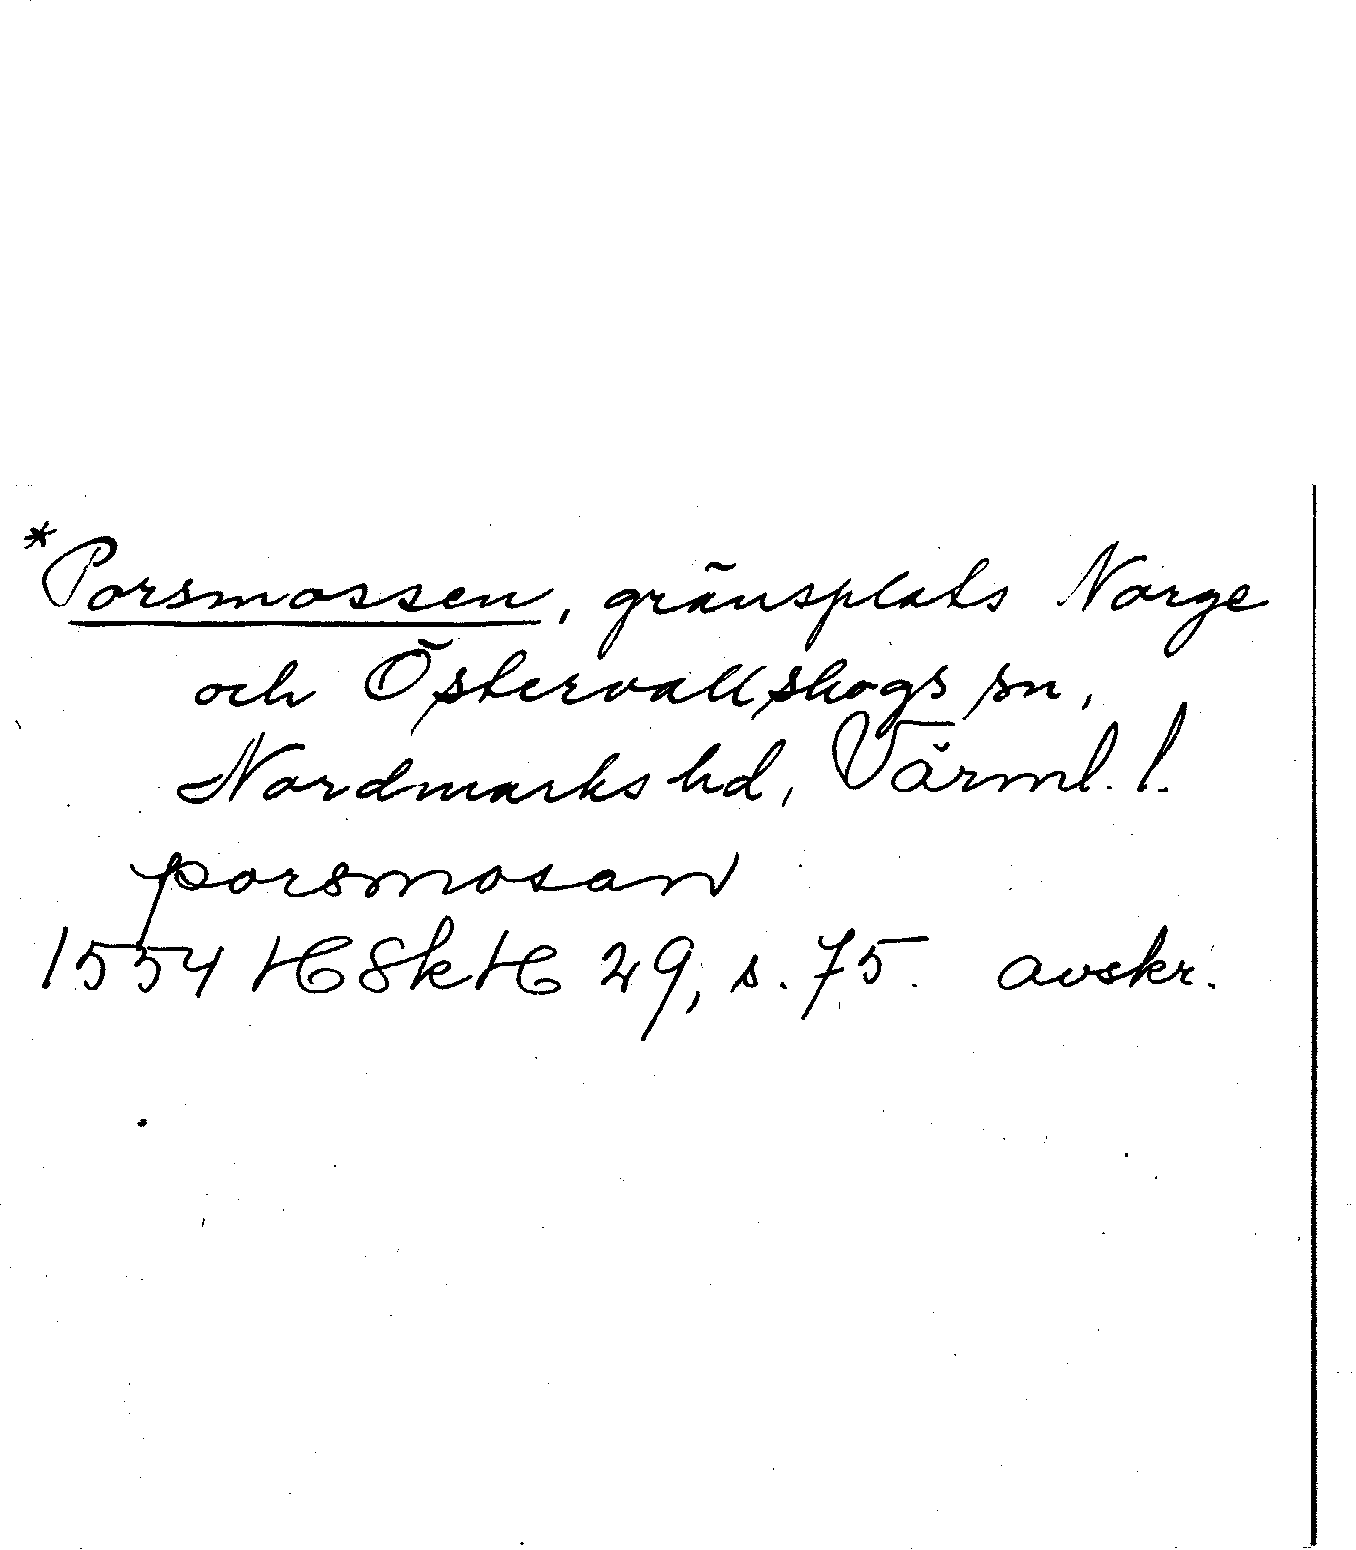 *Porsmossen, gränsplats Norge
och Östervallskogs sn,
Nordmarks hd, Värml. l.
porsmosan
1554 HSkH 29, s. 75. avskr.